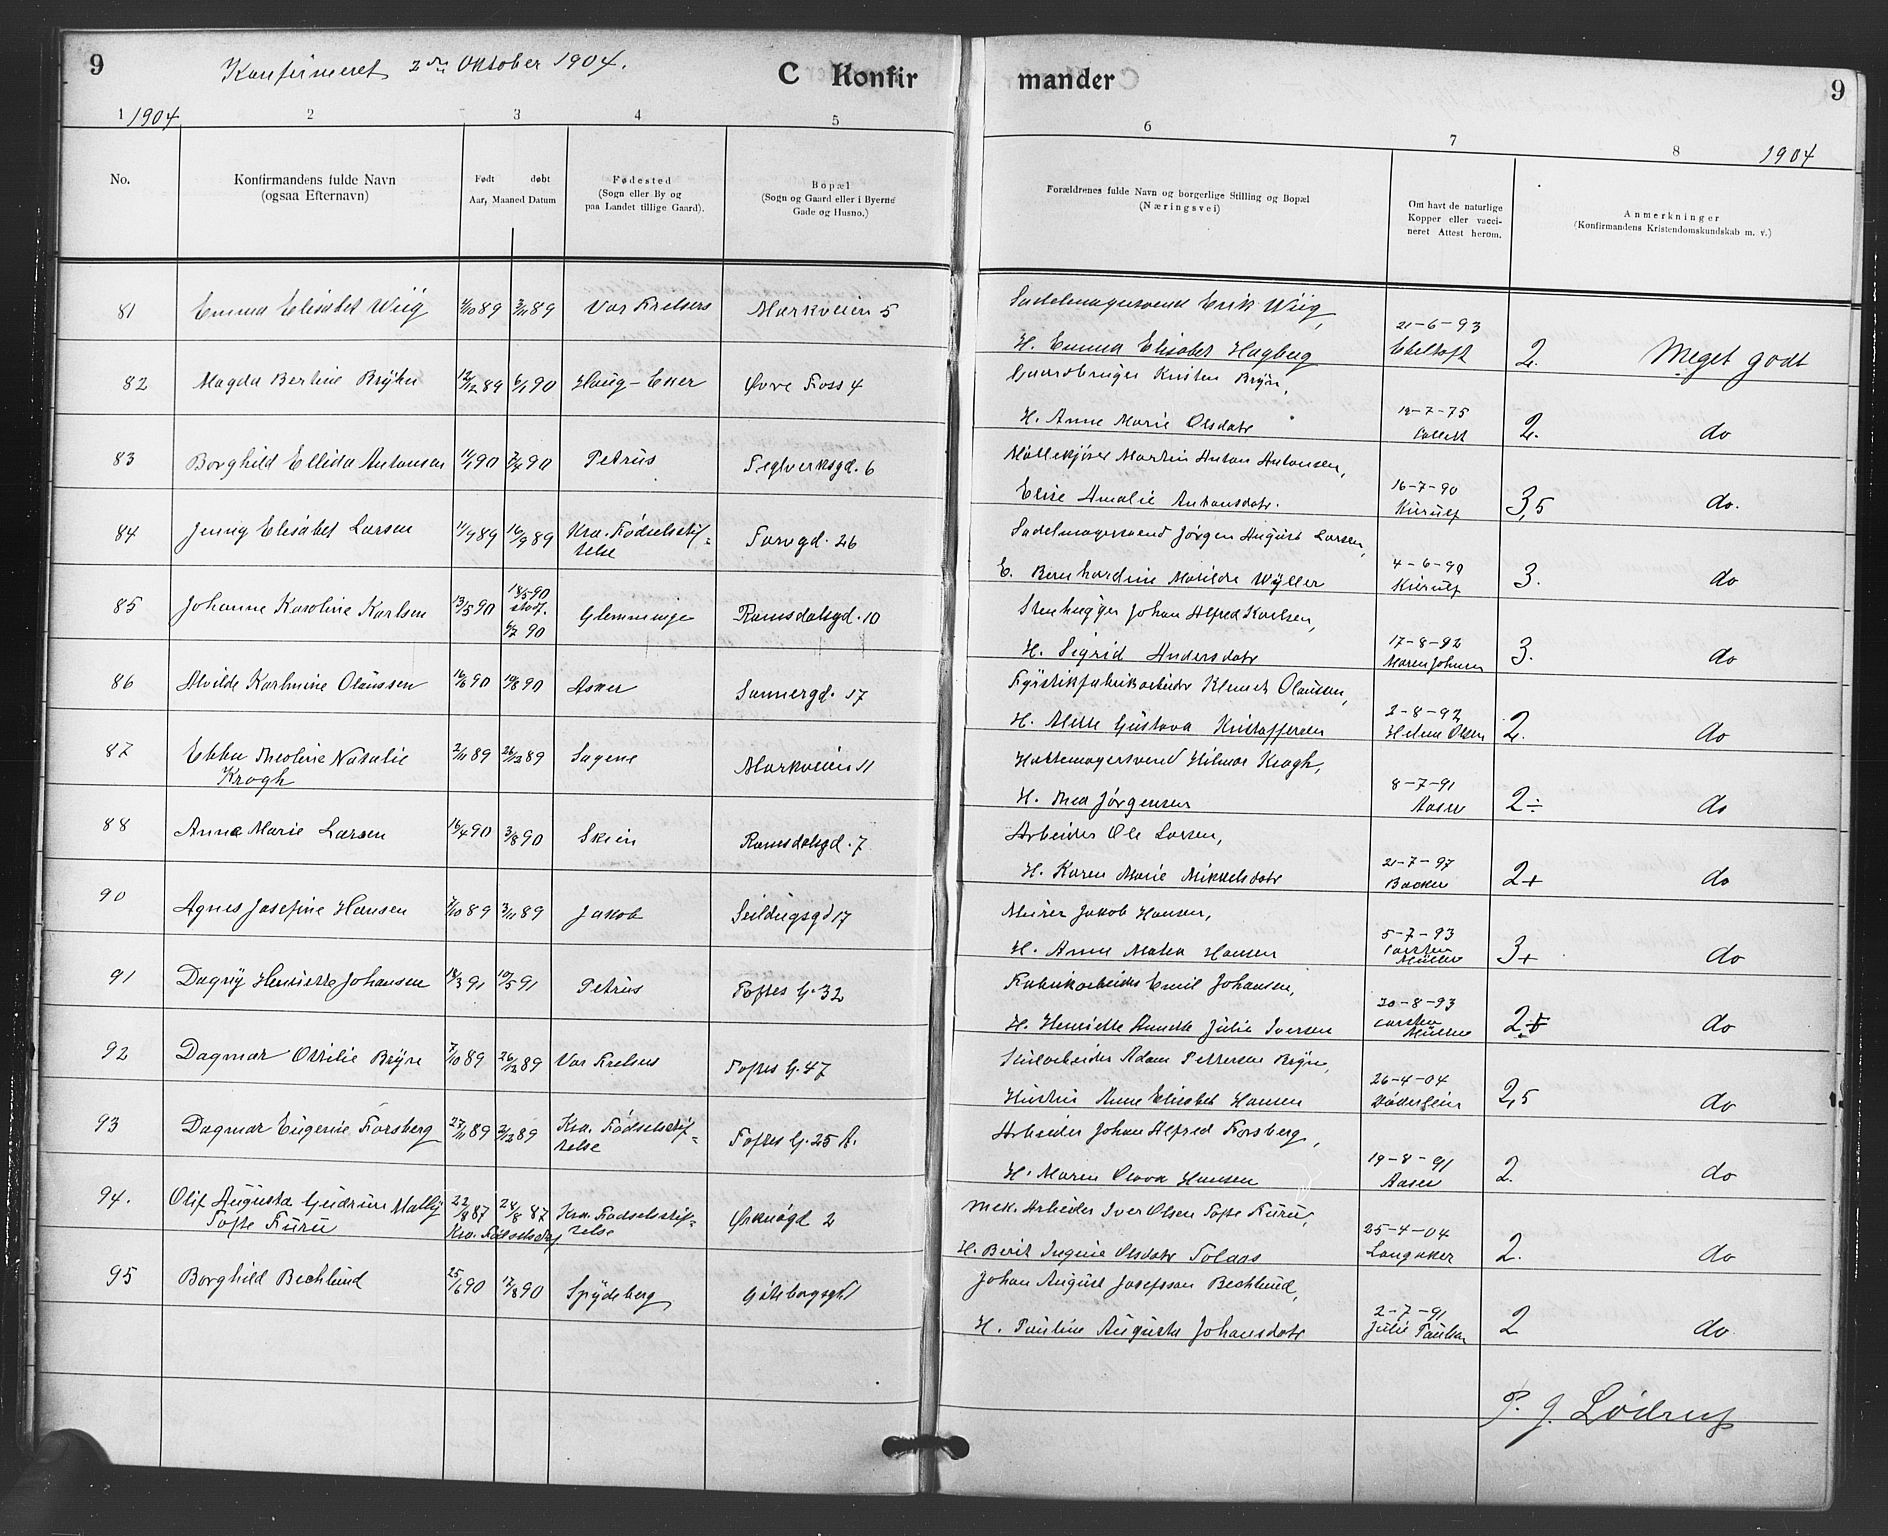 9
Konfirmeret 2den Oktober 1904.
C Konfir
mander
9
1 1904
2
3
4
5
6
7
8
1904
No.
Konfirmandens fulde Navn
(ogsaa Efternavn)
Født døbt
Aar, Maaned Datum
Fødested
(Sogn eller By og
paa Landet tillige Gaard).
Bopæl
(Sogn og Gaard eller i Byerne
Gade og Husno.)
Forældrenes fulde Navn og borgerlige Stilling og Bopæl
(Næringsvei)
Om havt de naturlige
Kopper eller vacci-
neret Attest herom.
Anmerkninger
(Konfirmandens Kristendomskundskab m. v.)
81 Emma Elisabet Wiig 7/10 89 3/11 89 Vor Frelsers Markveien 5
Sadelmagersvend Erik Wiig,
H. Emma Elisabet Hagberg
21-6-93
Ebeltoft 2. Meget godt
82 Magda Bertine 12/12 89 6/1 90 Haug-Eker Øvre Foss 4
Gaardbruger Kristen
H. Anne Marie Olsdatr
12-7-75
Collett 2. do
83 Borghild Ellida Antonsen 11/1 90 7/4 90 Petrus Teglverksgd. 6
Møllekjører Martin Anton Antonsen,
Elise Amalie Antonsdatr.
16-7-90
Kierulf 3,5 do.
84 Jenny Elisabet Larsen 11/9 89 16/9 89 Kra. Fødselsstif-
telse
Torvgd. 26
Sadelmagersvend Jørgen August Larsen,
E. Bernhardine Matilde Wyller
4-6-90
Kierulf 3. do
85 Johanne Karoline Karlsen 13/5 90 18/5 90
stadf.
6/7 90
Glemminge Romsdalsgd. 10
Stenhugger Johan Alfred Karlsen,
H. Sigrid Andersdatr
17-8-92
Maren Johnsen 3. do
86 Alvilde Karlmine Olaussen 16/6 90 10/8 90 Asker Sannergd. 17
Fyrstikfabrikarbeider Klemet Olausen,
H. Mette Gustava Kristoffersen
2-8-92
Helene Olsen 2. do
87 Ebba Theoline Natalie
Krogh
2/11 89 26/12 89 Sagene Markveien 11
Hattemagersvend Hilmar Krogh,
H. Thea Jørgensen
8-7-91
Aaser 2÷ do
88 Anna Marie Larsen 16/4 90 3/8 90 Skien Romsdalsgd. 7
Arbeider Ole Larsen,
H. Karen Marie Mikkelsdatr
21-7-97
Backer 2+ do
90 Agnes Josefine Hansen 7/10 89 3/11 89 Jakob Seildugsgd 17
Murer Jakob Hansen,
H. Anne Matea Hansen
5-7-93
Carsten
Müller 3+ do
91 Dagny Henriette Johansen 14/3 91 10/5 91 Petrus Toftes G. 32
Fabrikarbeider Emil Johansen,
H. Henriette Annette Julie Iversen
30-8-93
Carsten
Müller 2+ do
92 Dagmar Ottilie Bryne 7/10 89 26/12 89 Vor Frelsers Toftes G. 47
Adam Pettersen Bryn,
Hustru Anne Elisabet Hansen
26-4-04
Døderlein 2,5 do
93 Dagmar Eugenie Forsberg 27/11 89 2/12 89 Kra. Fødselsstif-
telse
Toftes G. 25 A.
Arbeider Johan Alfred Forsberg,
H. Maren Olava Hansen
19-8-91
Aaser 2. do
94. Olif Augusta Gudrun Mally
Tofte Furu
22/8 87 24/8 87
Kra. Fødselsstif
Kra. Fødselsstif-
telse
2
Mek. Arbeider Iver Olsen Tofte Furu,
H. Berit Ingerie Olsdatr Solaas
25-4-04
Langaker 2. do
95 Borghild Bechlund 25/6 90 17/8 90 Spydeberg Gøteborggd 1
Johan August Josefsson Bechlund,
H. Pauline Augusta Johansdatr
2-7-91
Julie Paulsen 2 do
P. J. Lødrup